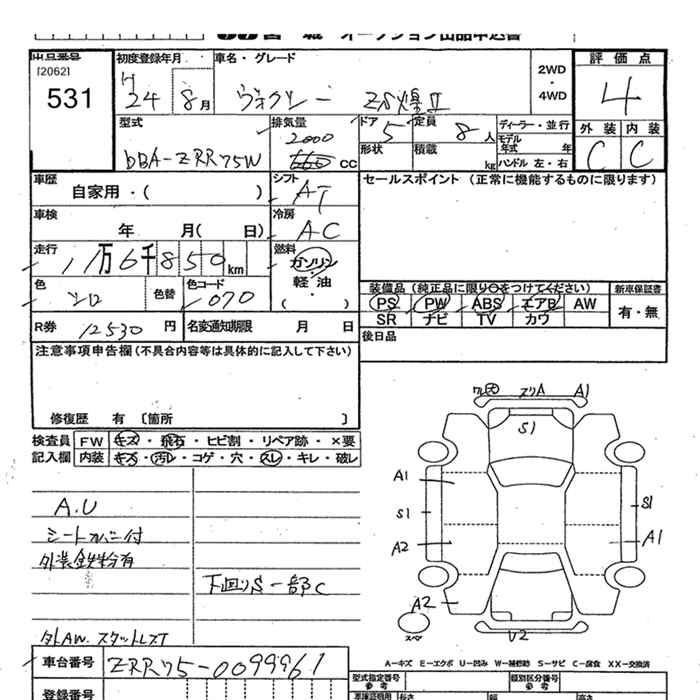 オークション出品申込書
出品番号 初度登録年月 車名・グレード 2WD・4WD 評価点
[2062]
531 H24 8月 ヴォクシー ZS煌Ⅱ 4
型式 排気量 ドア 定員 ディーラー・並行 外装 内装
DBA-ZRR75W 2000 CC 5 8人 モデル年式 年 C C
形状 積載 kg ハンドル 左・右
車歴 自家用・( ) シフト AT セールスポイント (正常に機能するものに限ります)
車検 年 月( 日) 冷房 AC
走行 11万6千850km 燃料 ガソリン・軽油・( )
色 シロ 色替 色コード 070 装備品(純正品に限り○をつけてください) 新車保証書
PS PW ABS エアB AW 有・無
SR ナビ TV カワ
R券 12530 円 名変通知期限 月 日 後日品
注意事項申告欄(不具合内容等は具体的に記入して下さい)
修復歴 有 〔箇所 〕
検査員 FW キズ・飛石・ヒビ割・リペア跡・×要
記入欄 内装 キズ・汚レ・コゲ・穴・スレ・キレ・破レ
A1
S1
A1
S1
S1
A2
A1
A2
スペア
U2
A.U
シートカバー付
外装鉄粉有
下回りS 一部C
外AW. スタットレスT
A-キズ E-エクボ U-凹み W-補修跡 S-サビ C-腐食 XX-交換済
車台番号 ZRR75-0099961
型式指定番号 類別区分番号
参考 参考
登録番号 車検証明用 長さ 幅 高さ